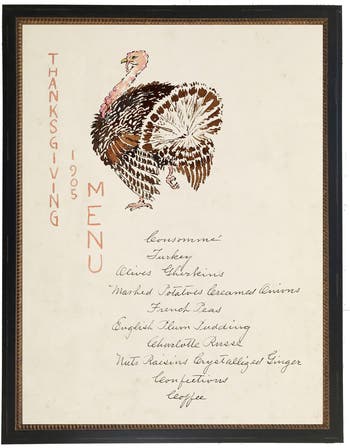 THANKSGIVING
1905
MENU
Consommé
Turkey
Olives Gherkins
Mashed Potatoes Creamed Onions
French Peas
English Plum Pudding
Charlotte Russe
Nuts Raisins Crystallized Ginger
Confections
Coffee